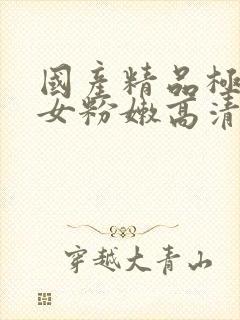 國產精品極
女粉嫩高清
穿越大青山